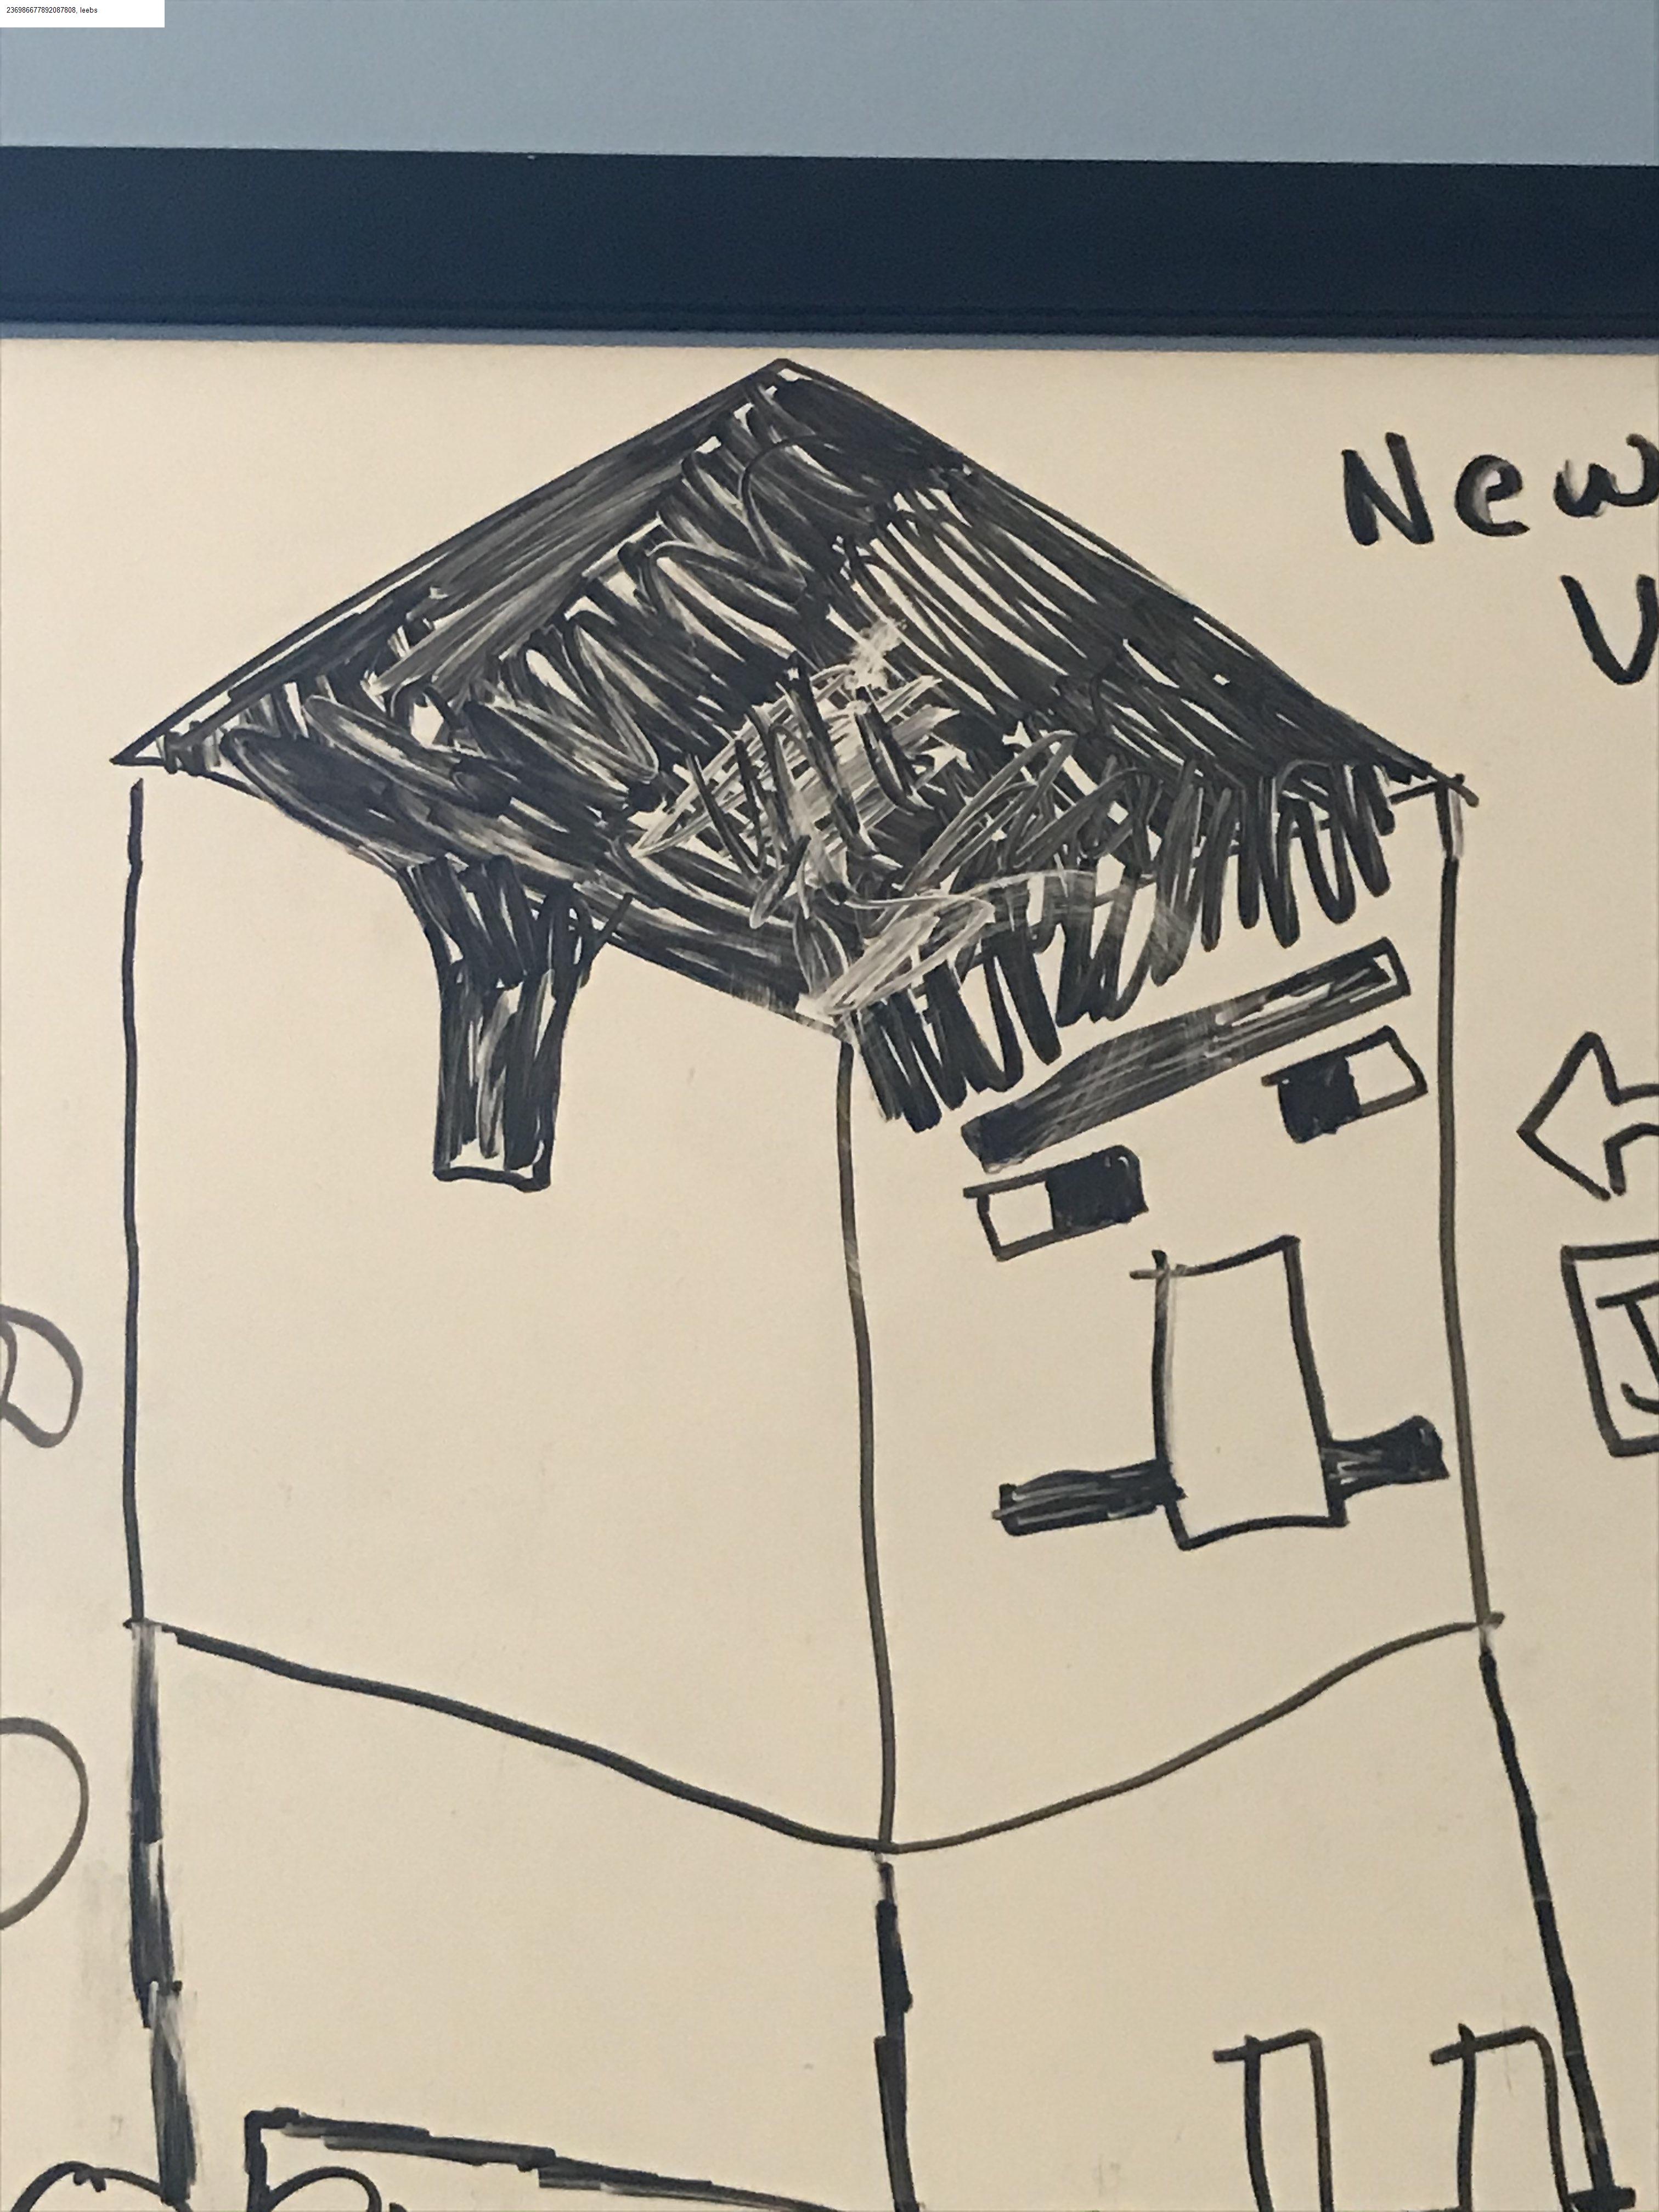 236986677892087808, leebs
New
V